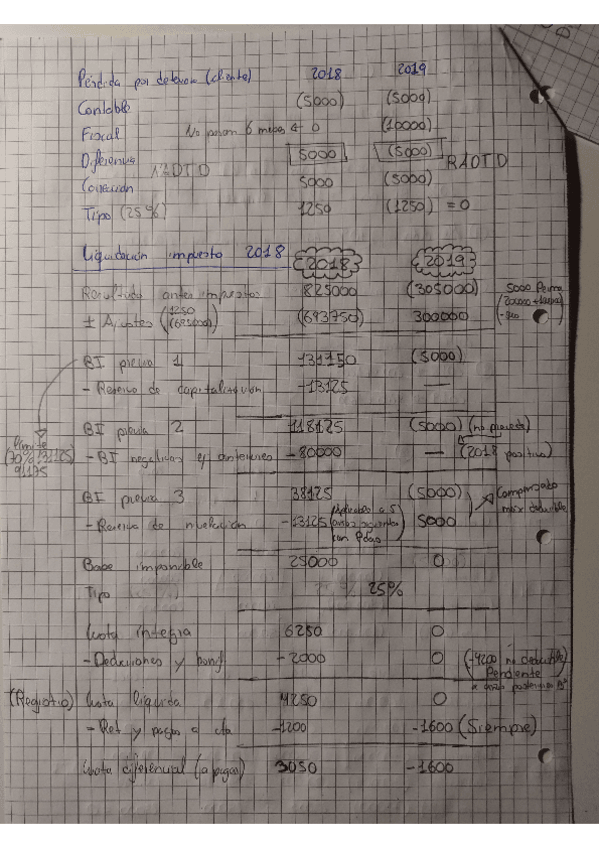 Pérdida por deterioro (cliente) 2018 2019
Contable (5000) (5000)
Fiscal No pasan 6 meses 0 (10000)
Diferencia 5000 (5000)
RAOTD
Corrección 5000 (5000)
Tipo (25%) 1250 (1250) = 0
Liquidación impuesto 2018 2018 2019
Resultado antes impuestos 825000 (305000) 5000 Perm
± Ajustes (1250 (695000)) (693750) 300000
BI previa 1 131250 (5000)
- Reserva de capitalización -13125 —
BI previa 2 118125 (5000) (no procede)
Límite (70% 131125) 91175
- BI negativas ej anteriores -80000 — (2018 positiva)
BI previa 3 38125 (5000) Compensado max deducible
- Reserva de nivelación -13125 5000
Base imponible 25000 0
Tipo 25%
Cuota íntegra 6250 0
- Deducciones y bonif -2000 0 (-4200 no deducible) Pendiente
(Registro) Cuota líquida 4250 0
- Ret y pagos a cta -1200 -1600 (Siempre)
Cuota diferencial (a pagar) 3050 -1600